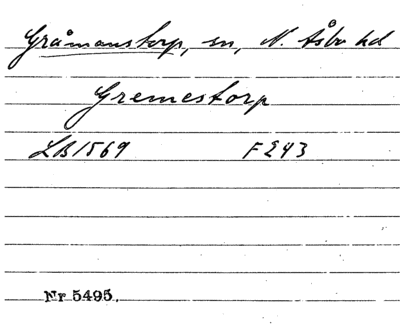 Gråmanstorp, sn, N. Åsbo hd
Gremestorp
LB 1569 F 243
Nr 5495.